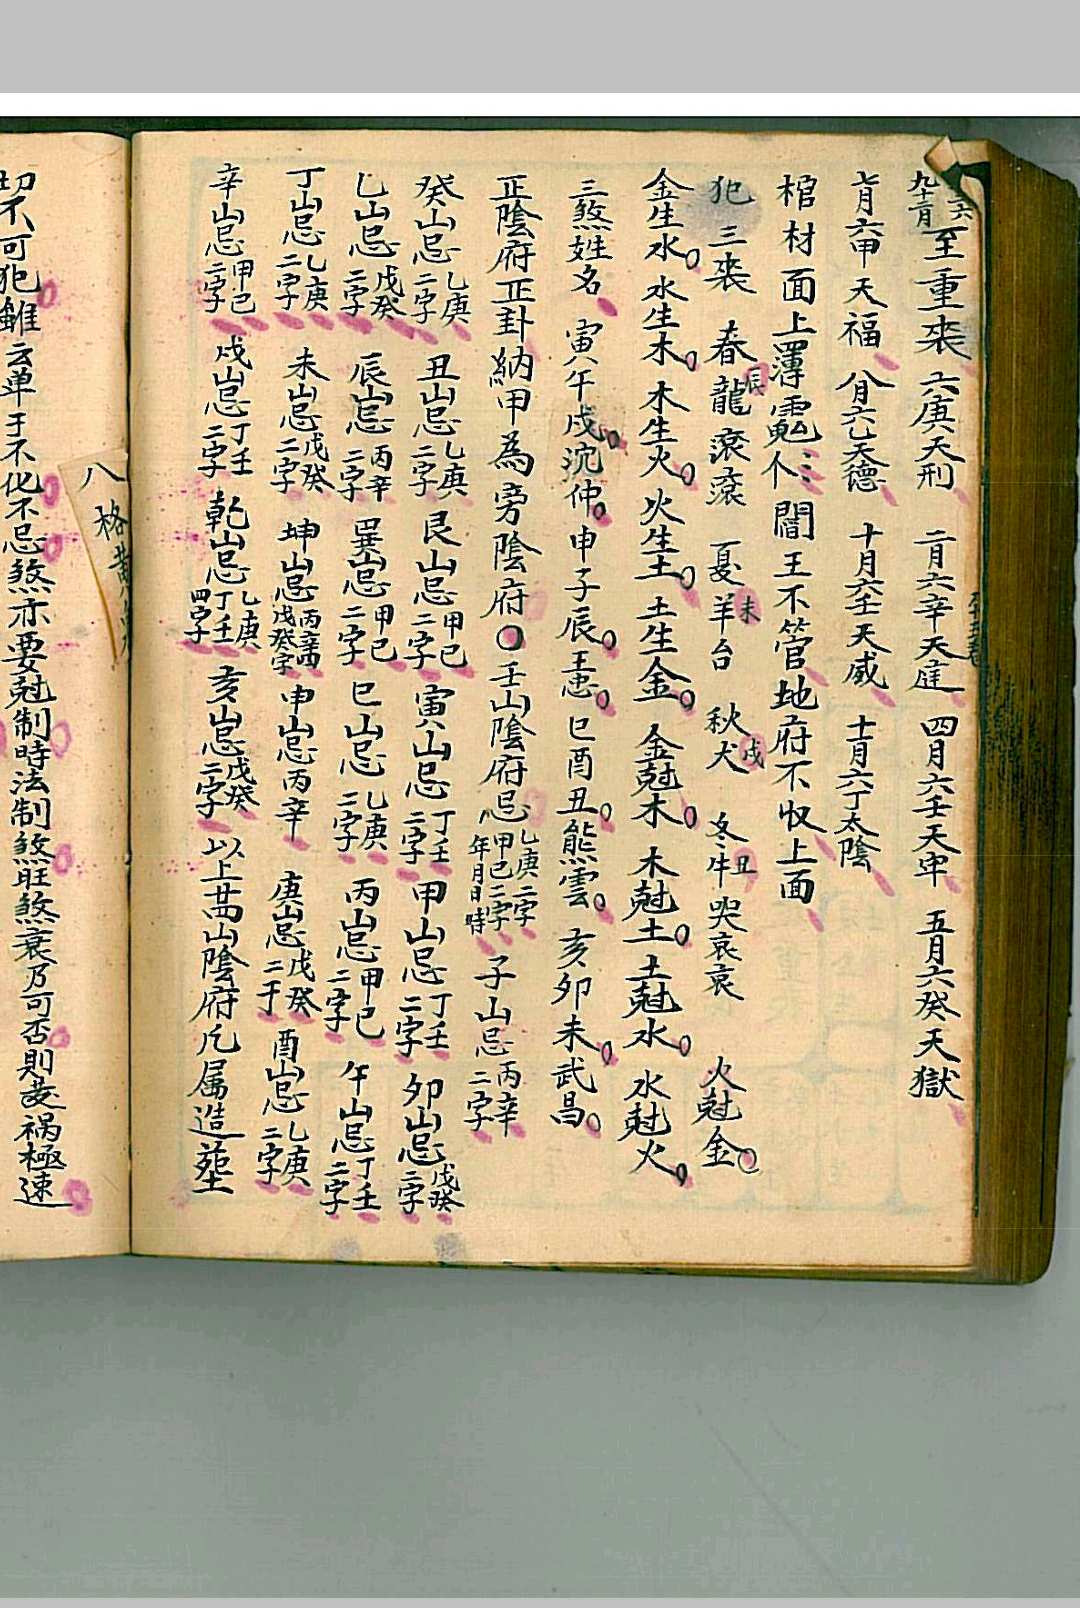 九十二月至重喪 六庚天刑 二月六辛天庭 四月六壬天牢 五月六癸天獄
七月六甲天福 八月六乙天德 十月六壬天威 十一月六丁太陰
棺材面上薄 閻王不管地府不收上面
犯三喪 春龍辰滾滾 夏羊未台 秋犬戌 冬牛丑哭哀哀 火尅金
金生水 水生木 木生火 火生土 土生金 金尅木 木尅土 土尅水 水尅火
三煞姓名 寅午戌沈仲 申子辰王忠 巳酉丑熊雲 亥卯未武昌
正陰府正卦納甲為旁陰府〇壬山陰府忌乙庚二字甲己二字年月日時 子山忌丙辛二字
癸山忌乙庚二字 丑山忌乙庚二字 艮山忌甲己二字 寅山忌丁壬二字 甲山忌丁壬二字 卯山忌戊癸二字
乙山忌戊癸二字 辰山忌丙辛二字 巽山忌甲己二字 巳山忌乙庚二字 丙山忌甲己二字 午山忌丁壬二字
丁山忌乙庚二字 未山忌戊癸二字 坤山忌丙辛戊癸四字 申山忌丙辛 庚山忌戊癸二字 酉山忌乙庚二字
辛山忌甲己二字 戌山忌丁壬二字 乾山忌乙庚丁壬四字 亥山忌戊癸二字 以上廿四山陰府凡属造塟
八格黃
切不可犯雖云单于不化不忌煞亦要尅制時法制煞旺煞衰乃可否則發禍極速